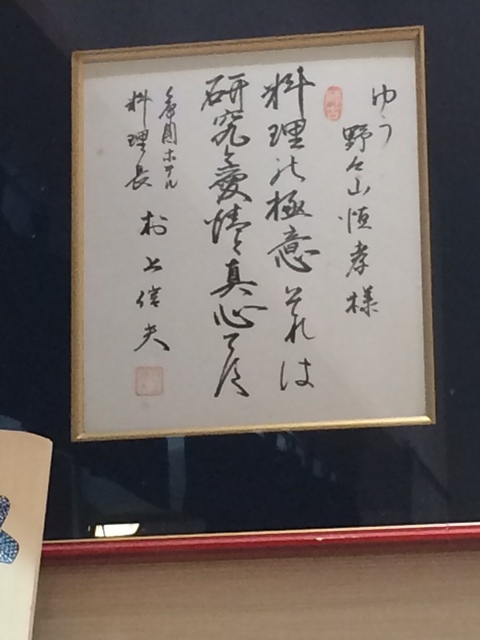 ゆう
野々山恒孝様
料理の極意それは
研究と愛情と真心です
帝国ホテル
料理長
村上信夫